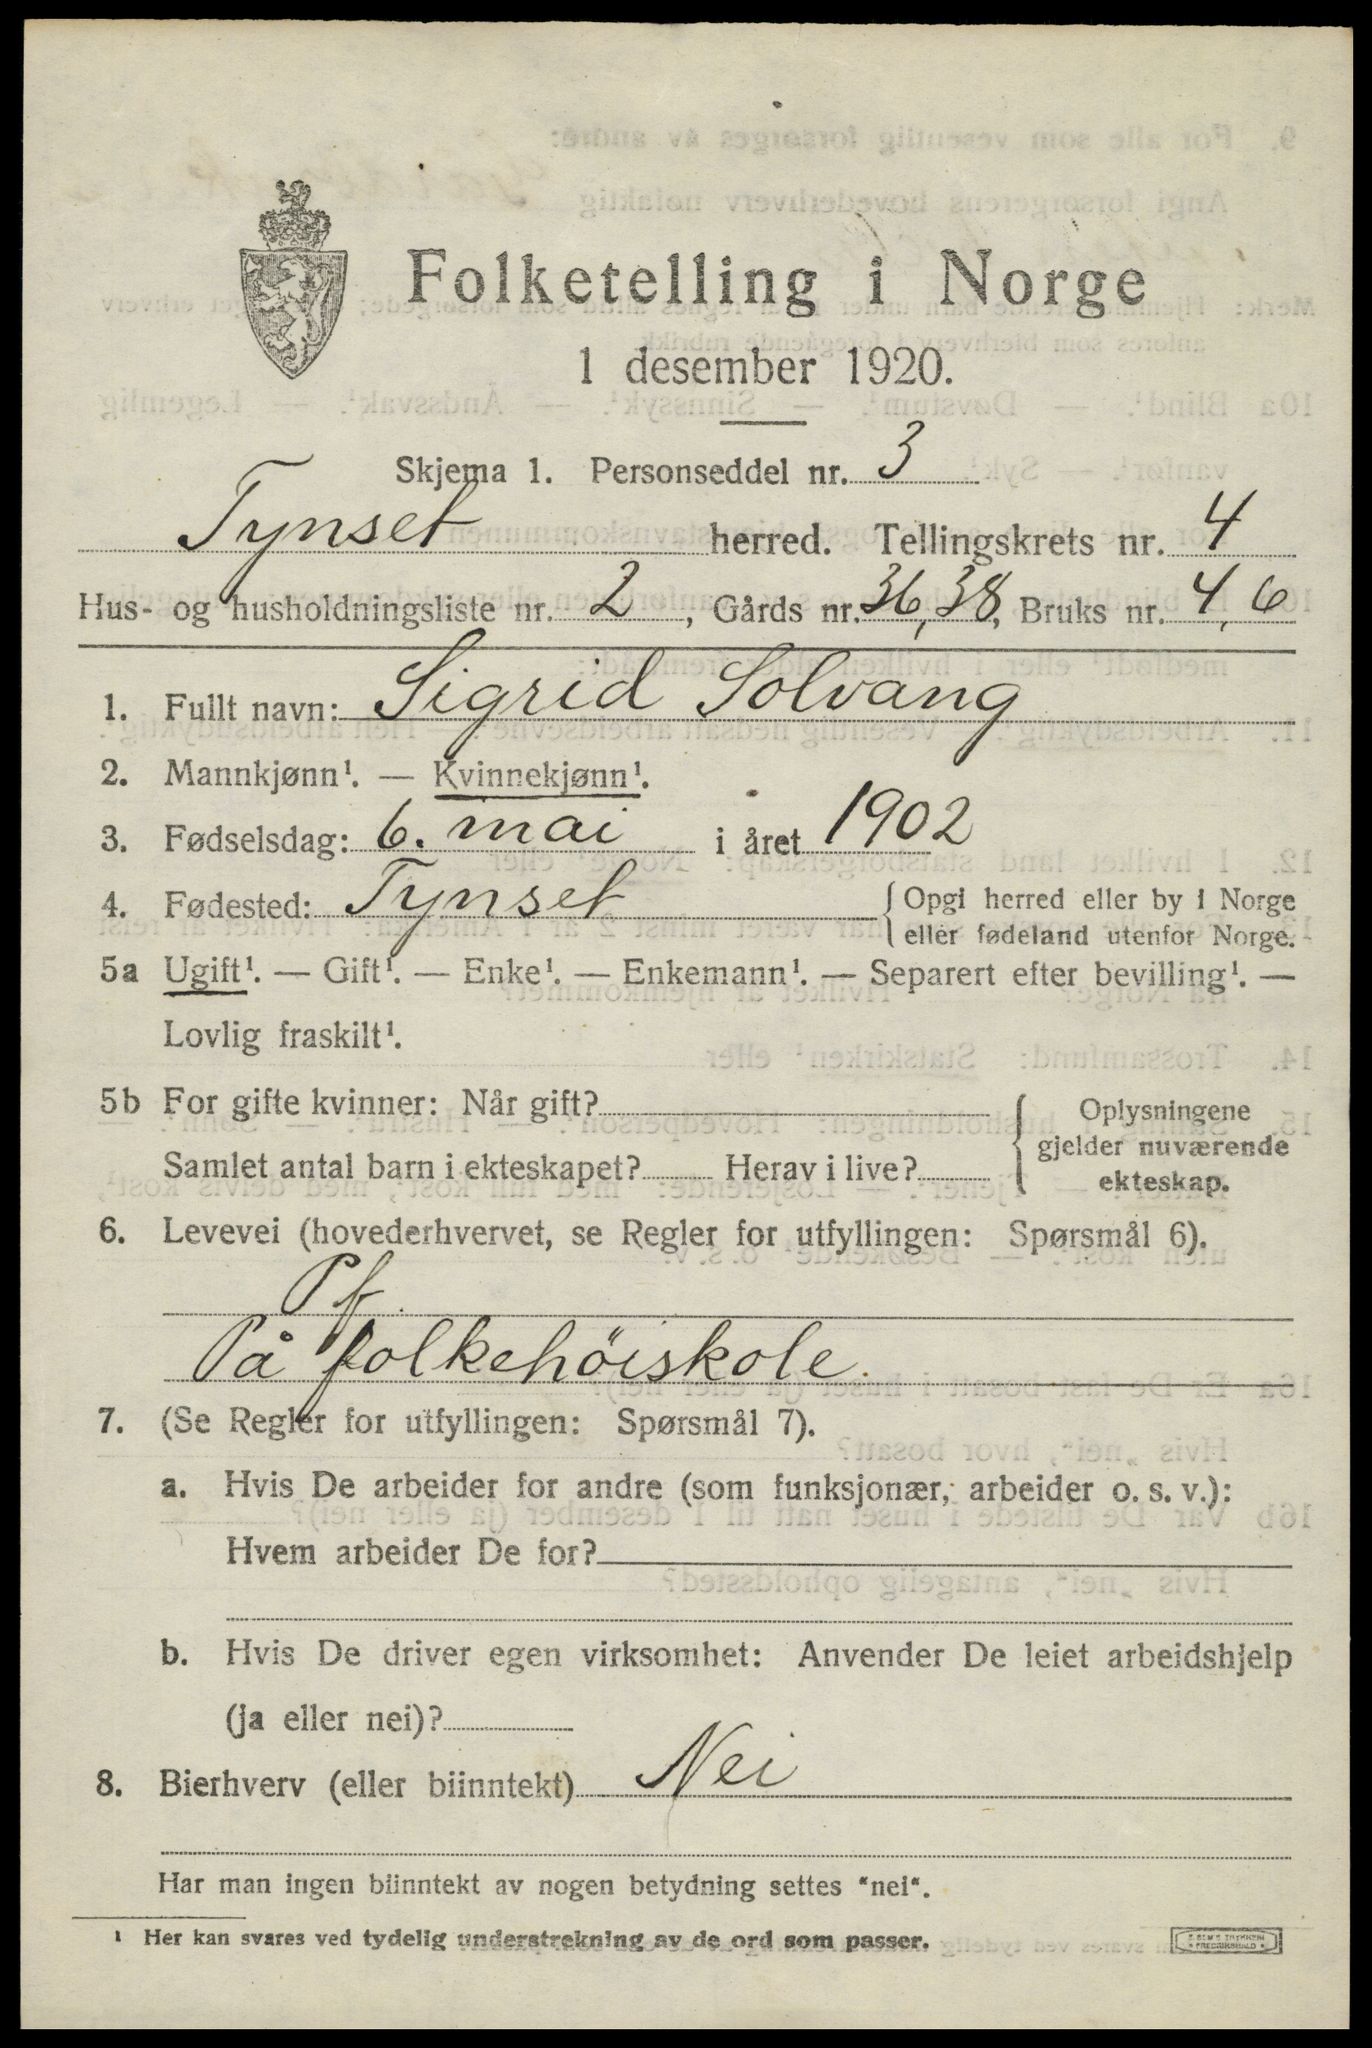 Folketelling i Norge
1 desember 1920.
Skjema 1. Personseddel nr. 3
Tynset herred. Tellingskrets nr. 4
Hus- og husholdningsliste nr. 2, Gårds nr. 36,38, Bruks nr. 4,6
1. Fullt navn: Sigrid Solvang
2. Mannkjønn¹. — Kvinnekjønn¹.
3. Fødselsdag: 6. mai i året 1902
4. Fødested: Tynset { Opgi herred eller by i Norge
eller fødeland utenfor Norge.
5a Ugift¹. — Gift¹. — Enke¹. — Enkemann¹. — Separert efter bevilling¹. —
Lovlig fraskilt¹.
5b For gifte kvinner: Når gift? { Oplysningene
gjelder nuværende
Samlet antal barn i ekteskapet? Herav i live?
ekteskap.
6. Levevei (hovederhvervet, se Regler for utfyllingen: Spørsmål 6).
Pf.
På folkehöiskole.
7. (Se Regler for utfyllingen: Spørsmål 7).
a. Hvis De arbeider for andre (som funksjonær, arbeider o. s. v.):
Hvem arbeider De for?
b. Hvis De driver egen virksomhet: Anvender De leiet arbeidshjelp
(ja eller nei)?
8. Bierhverv (eller biinntekt) Nei
Har man ingen biinntekt av nogen betydning settes "nei".
¹ Her kan svares ved tydelig understrekning av de ord som passer.